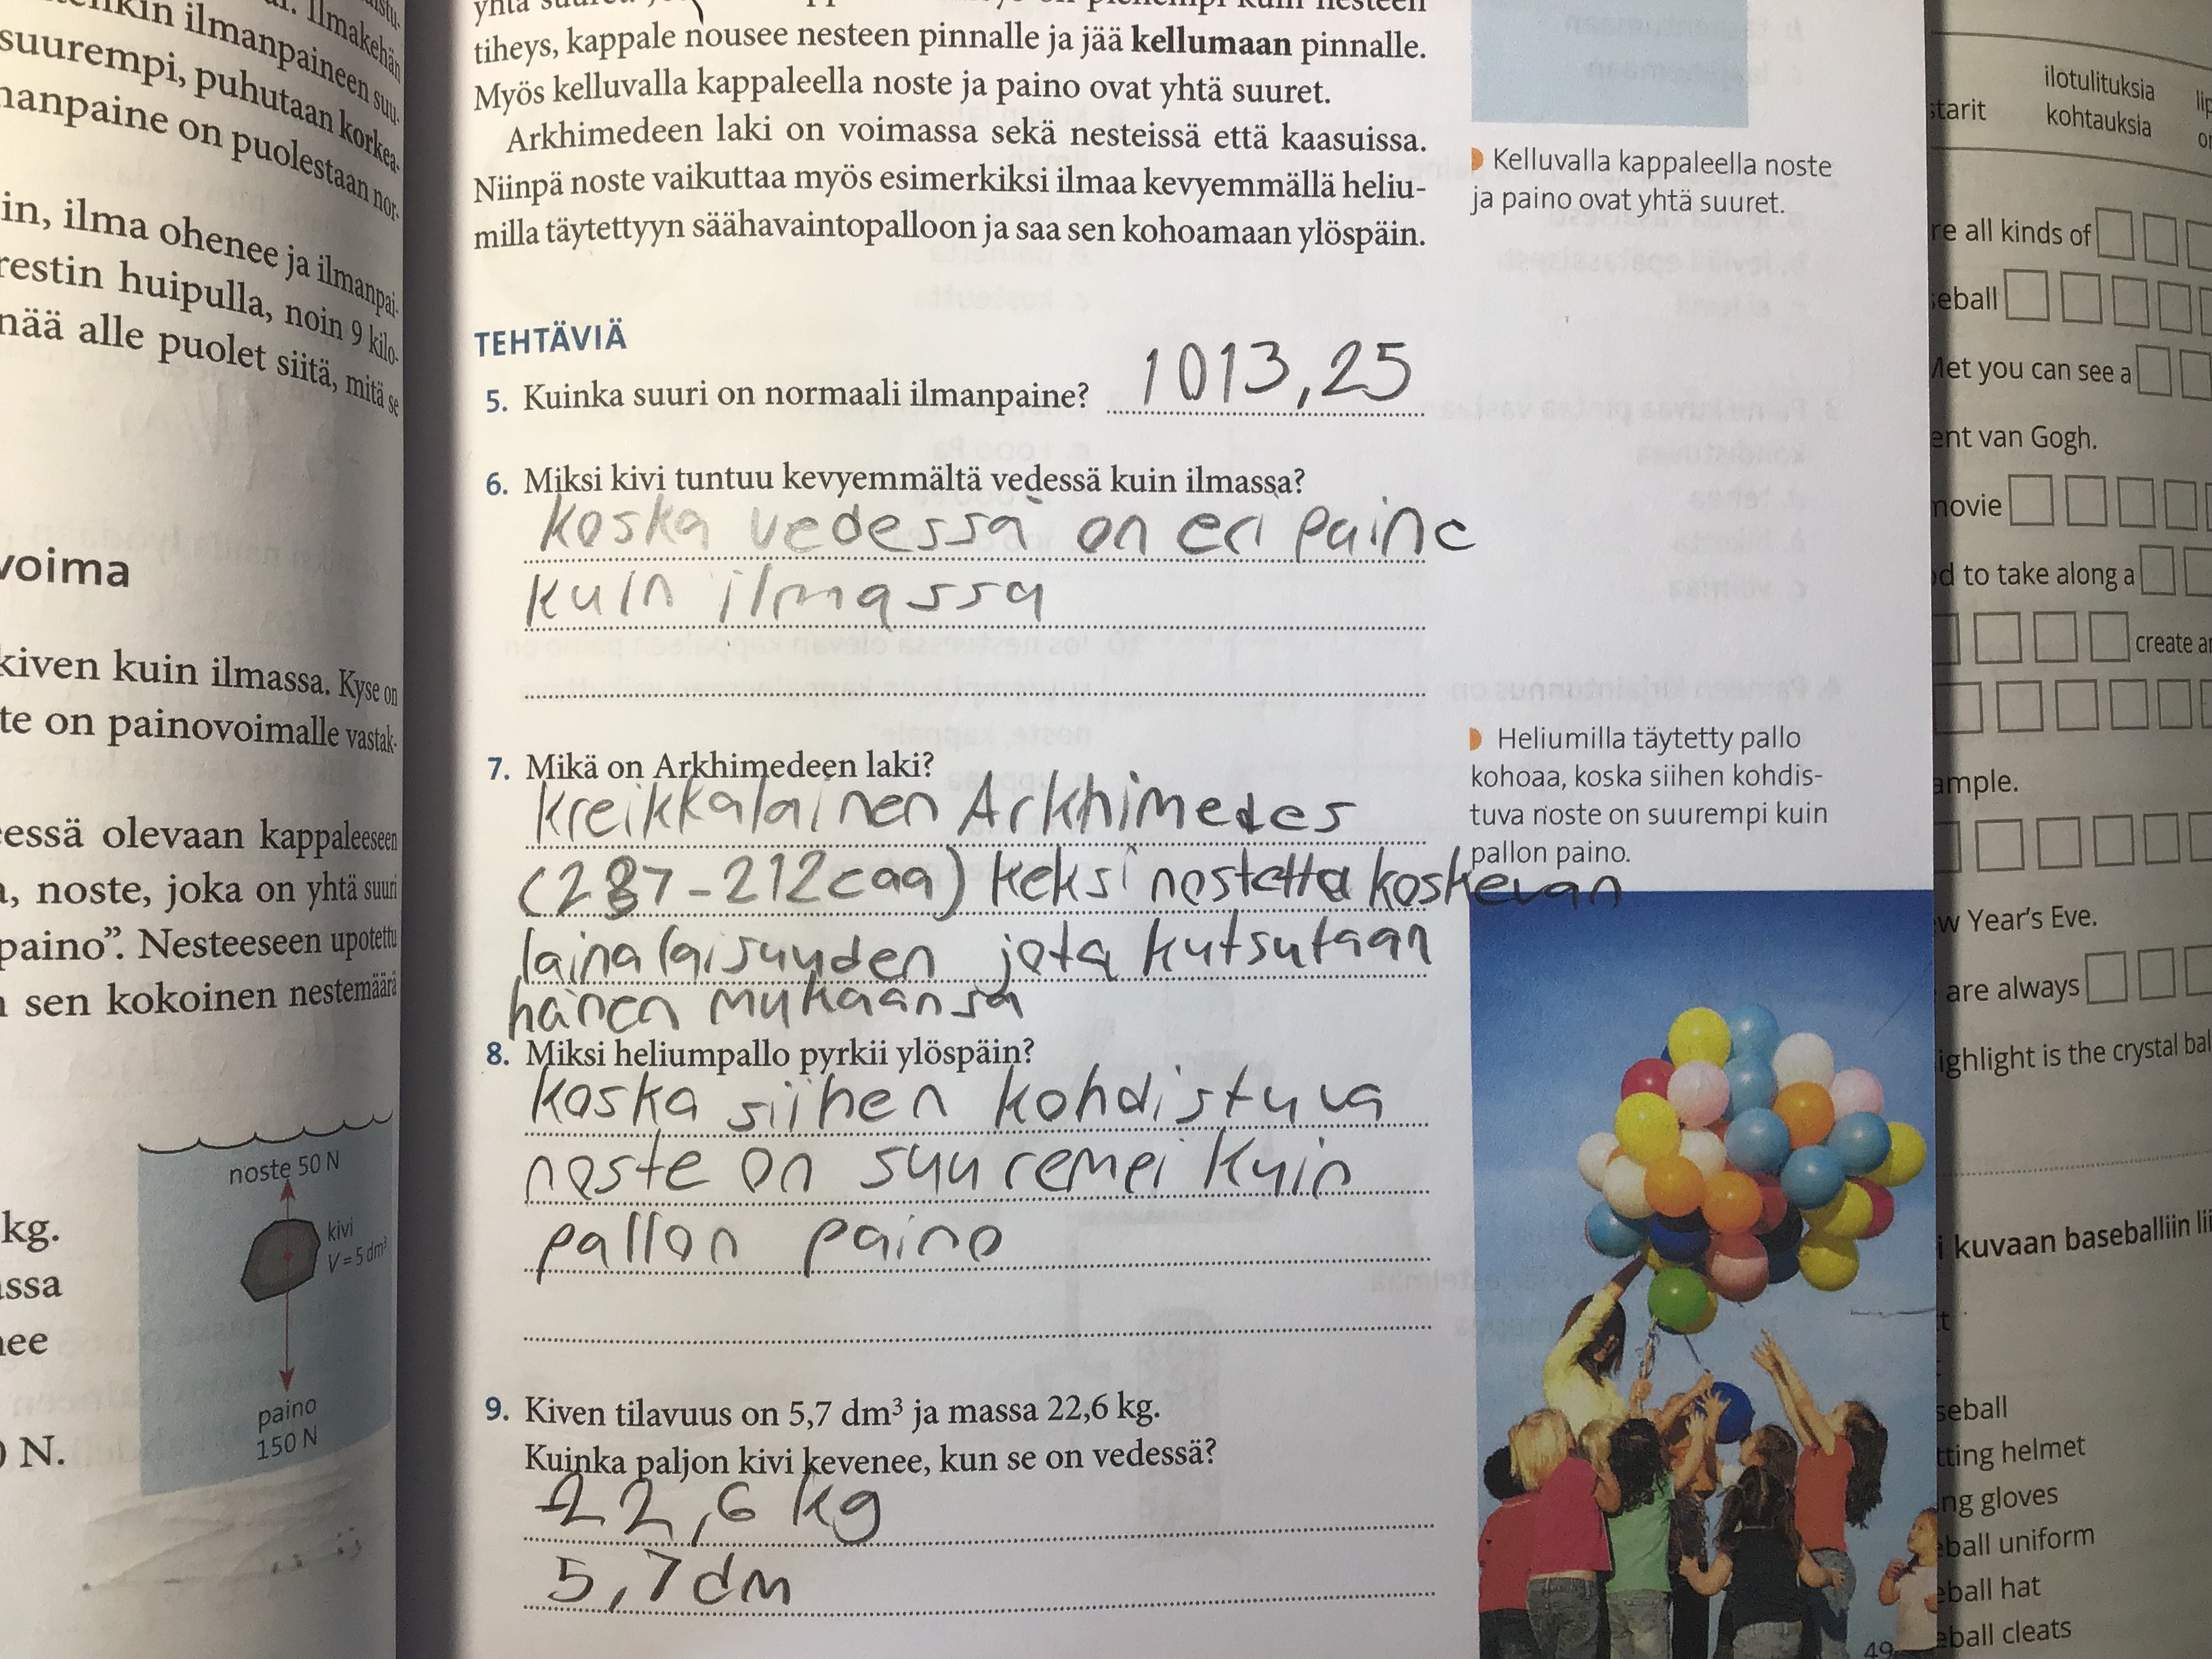 tiheys, kappale nousee nesteen pinnalle ja jää kellumaan pinnalle.
Myös kelluvalla kappaleella noste ja paino ovat yhtä suuret.
Arkhimedeen laki on voimassa sekä nesteissä että kaasuissa.
Niinpä noste vaikuttaa myös esimerkiksi ilmaa kevyemmällä heliu-
milla täytettyyn säähavaintopalloon ja saa sen kohoamaan ylöspäin.
Kelluvalla kappaleella noste
ja paino ovat yhtä suuret.
TEHTÄVIÄ
5. Kuinka suuri on normaali ilmanpaine? 1013,25
6. Miksi kivi tuntuu kevyemmältä vedessä kuin ilmassa?
koska vedessä on eri paine
kuin ilmassa
7. Mikä on Arkhimedeen laki?
kreikkalainen Arkhimedes
(287-212eaa) keksi nostetta koskevan
lainalaisuuden jota kutsutaan
hänen mukaansa
8. Miksi heliumpallo pyrkii ylöspäin?
koska siihen kohdistuva
noste on suuremei kuin
pallon paino
9. Kiven tilavuus on 5,7 dm³ ja massa 22,6 kg.
Kuinka paljon kivi kevenee, kun se on vedessä?
22,6 kg
5,7dm
Heliumilla täytetty pallo
kohoaa, koska siihen kohdis-
tuva noste on suurempi kuin
pallon paino.
49
Ilmakehän
ilmanpaineen suu-
suurempi, puhutaan korkea-
manpaine on puolestaan nor-
in, ilma ohenee ja ilmanpai-
restin huipulla, noin 9 kilo-
alle puolet siitä, mitä se
voima
kiven kuin ilmassa. Kyse on
te on painovoimalle vastak-
essä olevaan kappaleeseen
, noste, joka on yhtä suuri
paino”. Nesteeseen upotettu
sen kokoinen nestemäärä
noste 50 N
kivi
V = 5 dm³
paino
150 N
kg.
ssa
nee
N.
ilotulituksia
starit
kohtauksia
re all kinds of
seball
Met you can see a
ent van Gogh.
movie
d to take along a
create
ample.
w Year’s Eve.
are always
ighlight is the crystal
kuvaan baseballiin
seball
tting helmet
ng gloves
ball uniform
eball hat
eball cleats